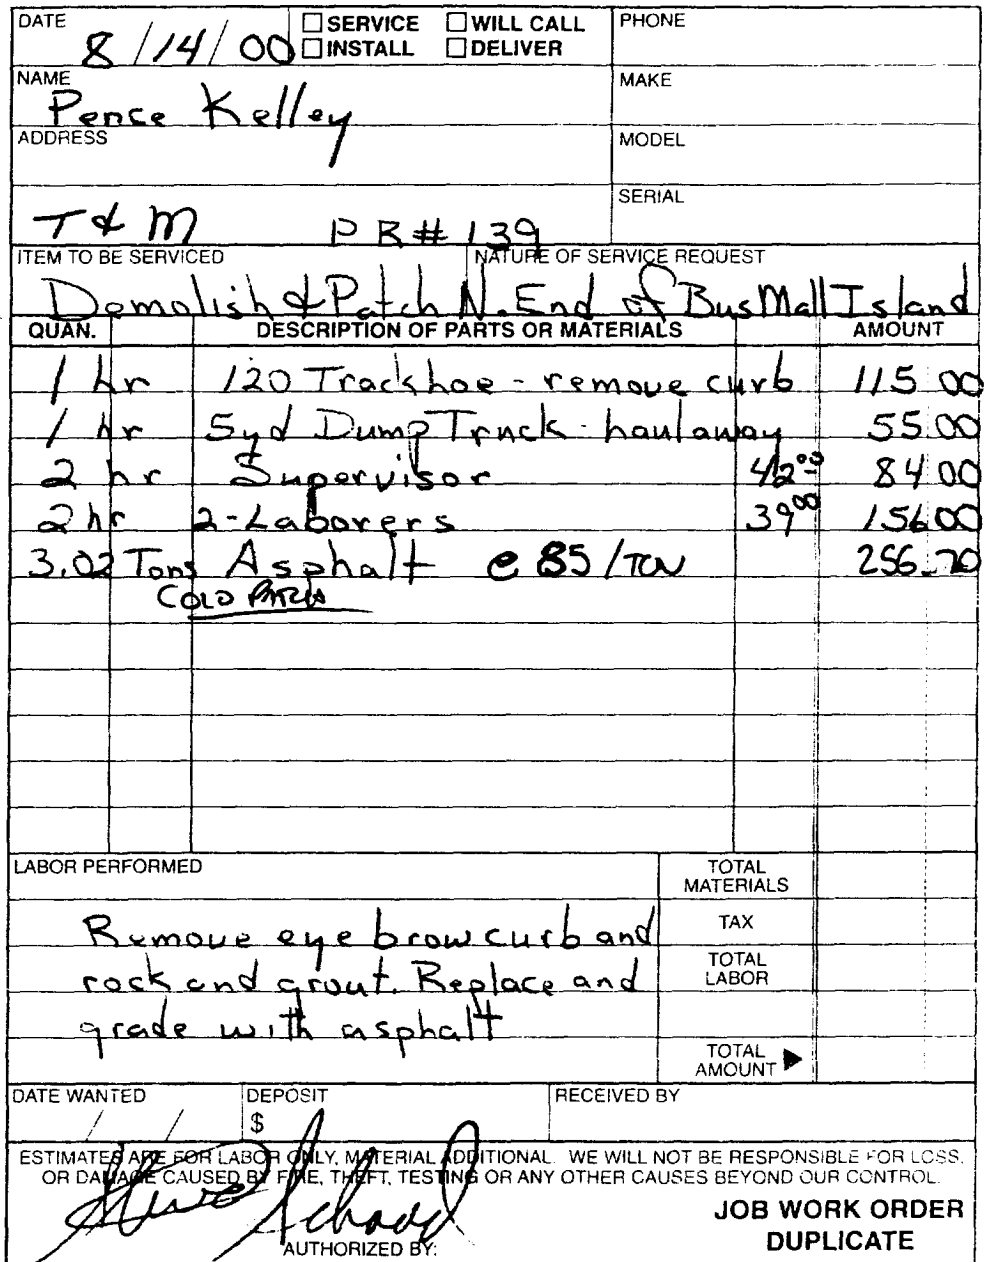 DATE 8/14/00 □ SERVICE □ WILL CALL PHONE
□ INSTALL □ DELIVER
NAME Pence Kelley MAKE
ADDRESS MODEL
SERIAL
T & M PR# 139
ITEM TO BE SERVICED NATURE OF SERVICE REQUEST
Demolish & Patch N. End of Bus Mall Island
QUAN. DESCRIPTION OF PARTS OR MATERIALS AMOUNT
1 hr 120 Trackhoe - remove curb 115 00
1 hr 5yd Dump Truck - haul away 55 00
2 hr Supervisor 42 00 84 00
2 hr 2-Laborers 39 00 156 00
3.02 Tons Asphalt @ 85/TON 256.70
COLD PATCH
LABOR PERFORMED TOTAL MATERIALS
Remove eye brow curb and TAX
rock and grout. Replace and TOTAL LABOR
grade with asphalt
TOTAL AMOUNT ▶
DATE WANTED / / DEPOSIT $ RECEIVED BY
ESTIMATES ARE FOR LABOR ONLY, MATERIAL ADDITIONAL. WE WILL NOT BE RESPONSIBLE FOR LOSS
OR DAMAGE CAUSED BY FIRE, THEFT, TESTING OR ANY OTHER CAUSES BEYOND OUR CONTROL.
JOB WORK ORDER
AUTHORIZED BY: DUPLICATE